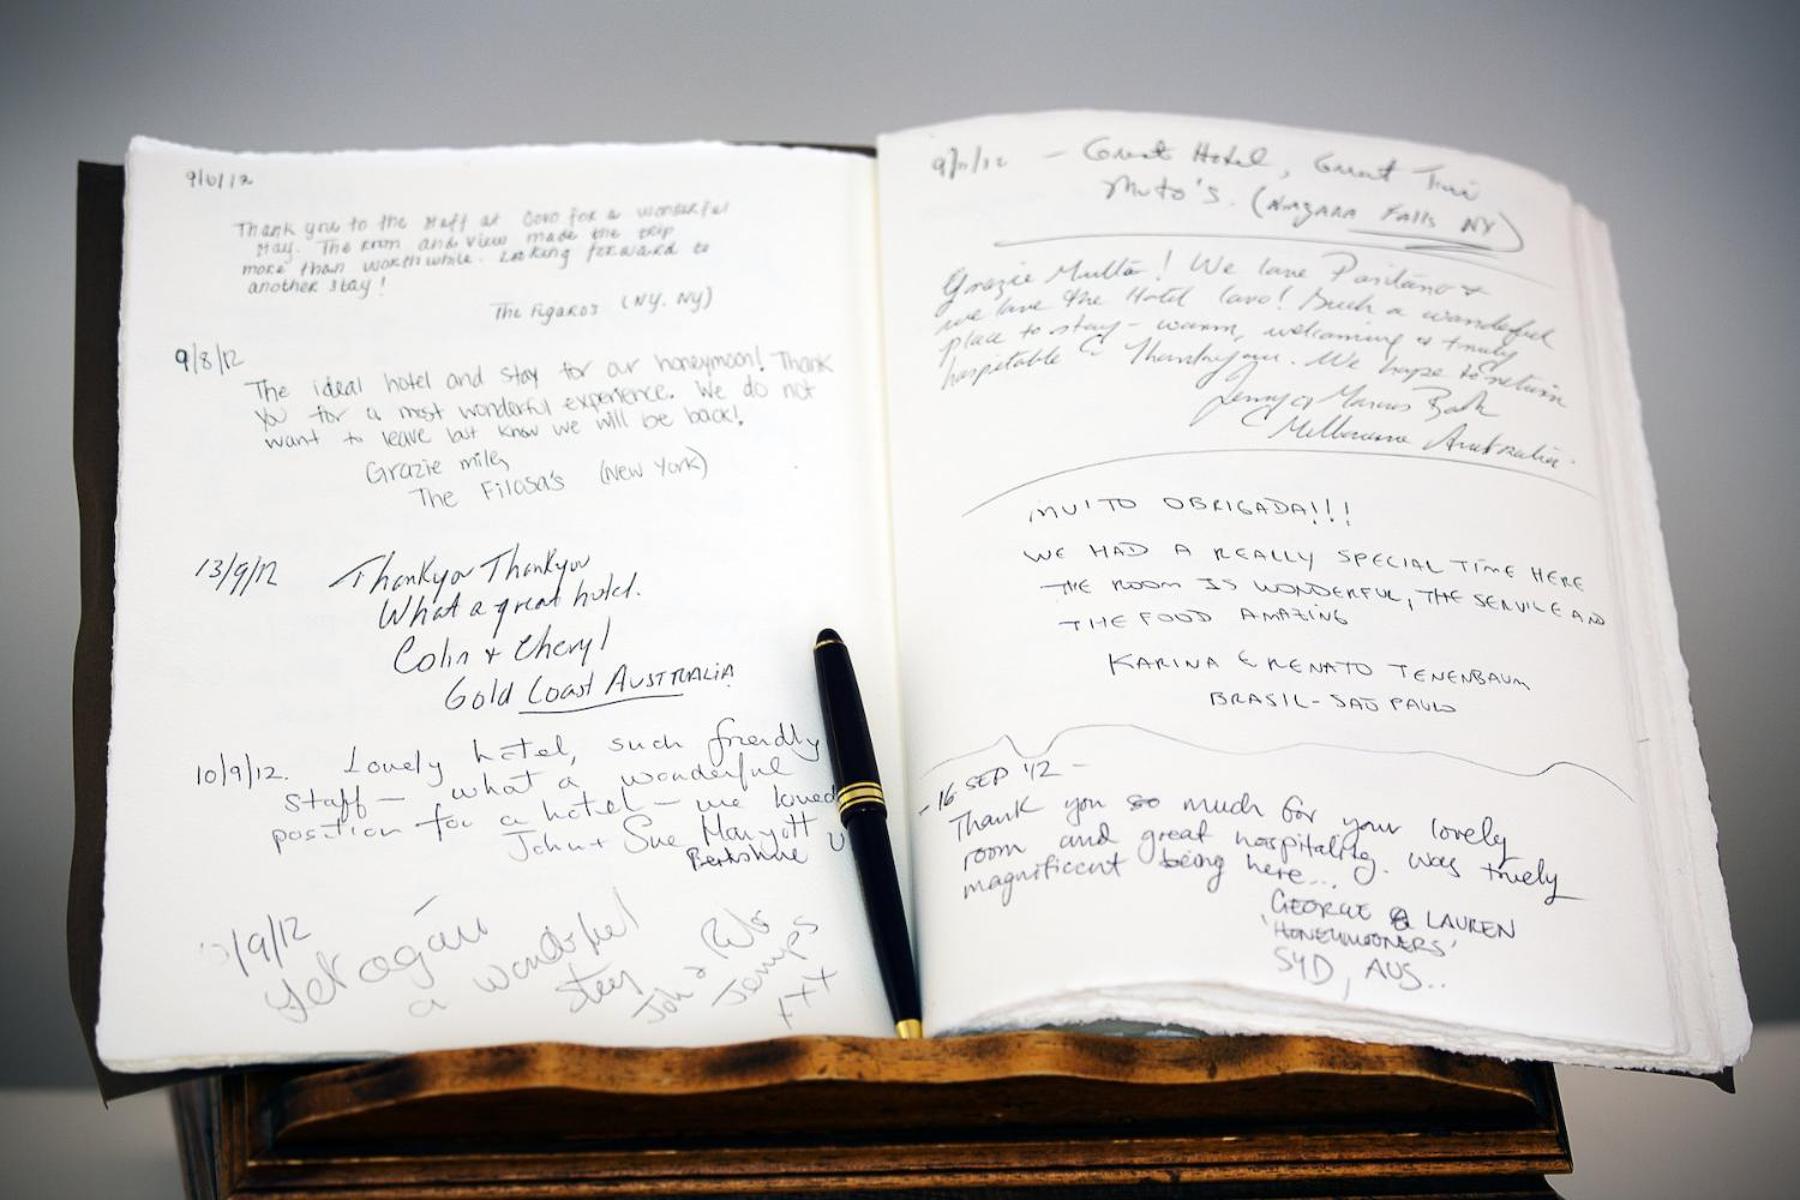 9/6/12
Thank you to the staff at Covo for a wonderful
stay. The room and view made the trip
more than worthwhile. Looking forward to
another stay!
The Figaro's (NY. NY)
9/8/12
The ideal hotel and stay for our honeymoon! Thank
you for a most wonderful experience. We do not
want to leave but know we will be back!
Grazie mille,
The Filosa's (New York)
13/9/12 Thankyou Thankyou
What a great hotel.
Colin + Cheryl
Gold Coast AUSTRALIA
10/9/12. Lovely hotel, such friendly
staff - what a wonderful
position for a hotel - we loved
John + Sue Maryott
Berkshire U
/9/12
Yet again
a wonderful
stay
Jemps
xxx
9/11/12 - Great Hotel, Great
Muto's. (Niagara Falls NY)
Grazie Multa! We love Positano +
we love the Hotel Covo! Such a wonderful
place to stay - warm, welcoming & truly
hospitable Thankyou. We hope to return
Jenny & Marcus
Melbourne Australia.
MUITO OBRIGADA!!!
WE HAD A REALLY SPECIAL TIME HERE
THE ROOM IS WONDERFUL, THE SERVICE AND
THE FOOD AMAZING
KARINA E RENATO TENENBAUM
BRASIL - SAO PAULO
- 16 SEP '12 -
Thank you so much for your lovely
room and great hospitality. Was truely
magnificent being here...
GEORGE & LAUREN
'HONEYMOONERS'
SYD, AUS..